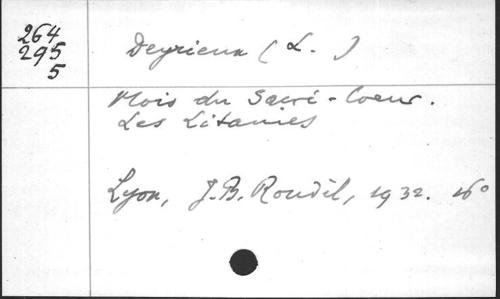 264
295
5
Deyrieux (L.)
Mois du Sacré-Coeur.
Les Litanies
Lyon, J.B. Roudil, 1932. 16°